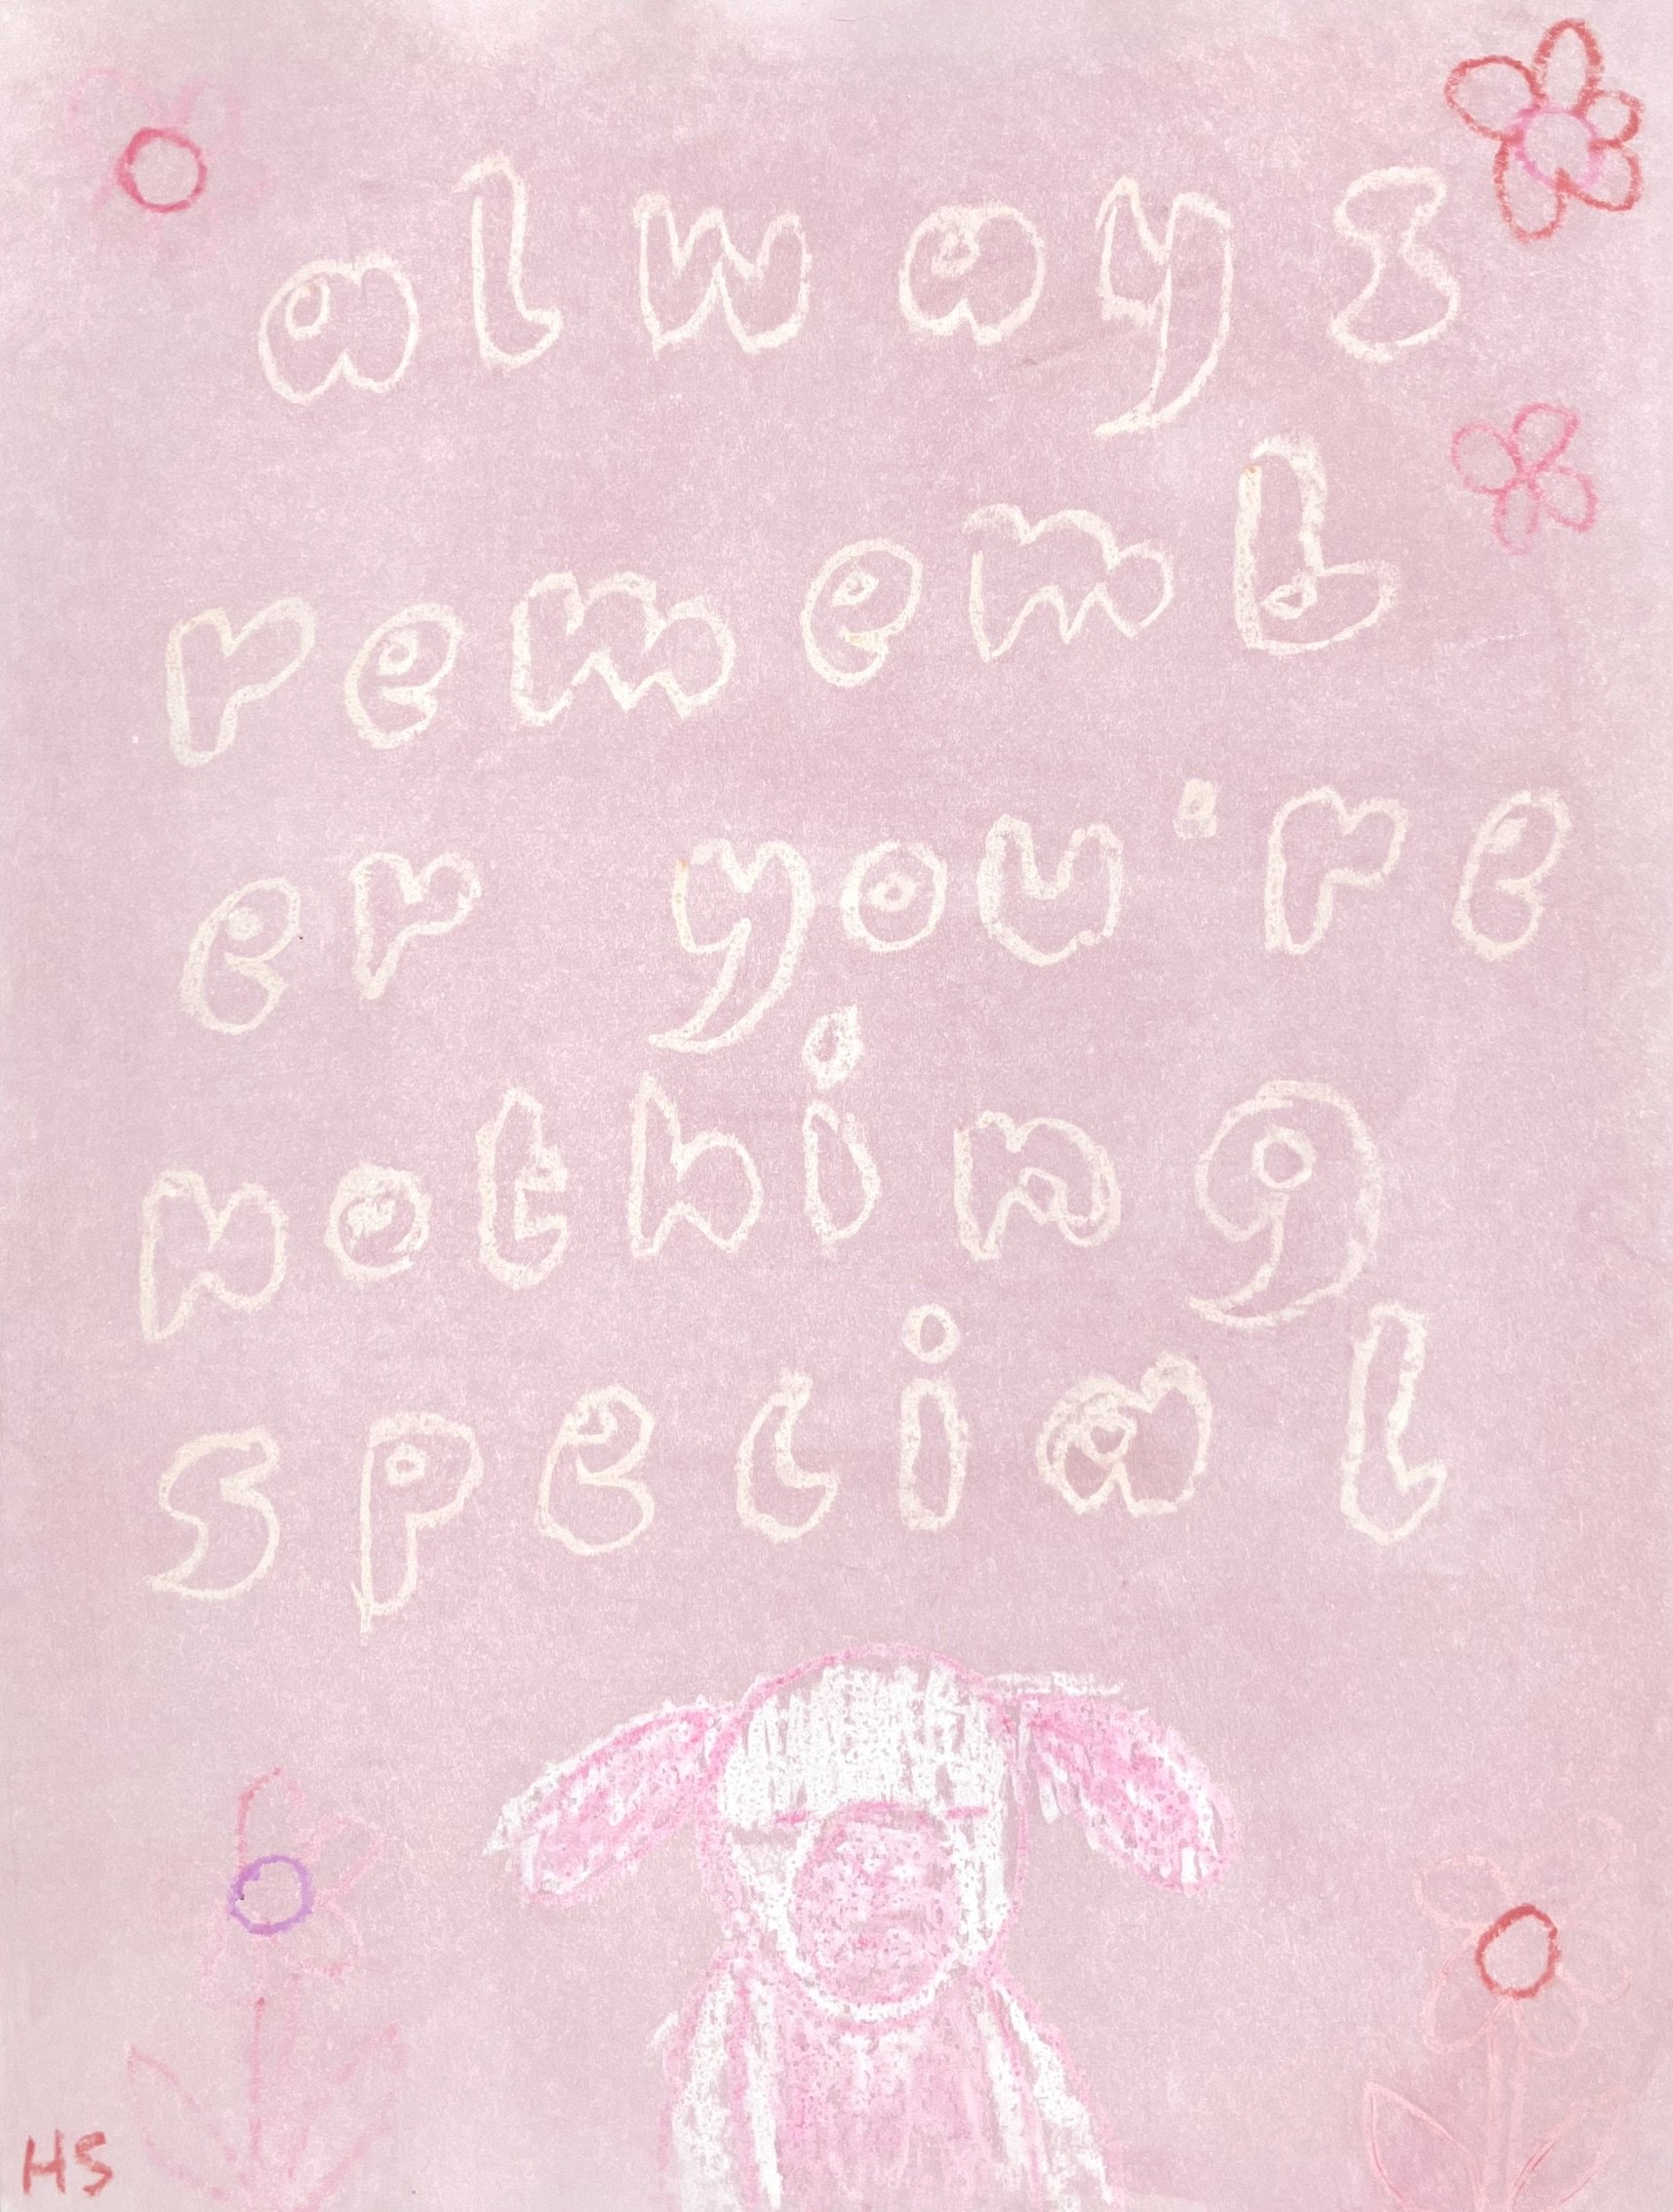 always
rememb
er you're
nothing
special
HS